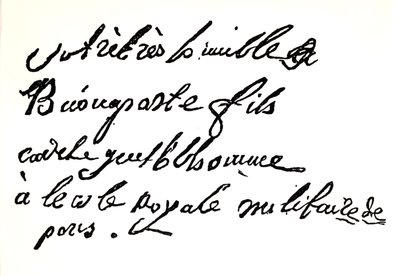 votre très humble &
Buonaparte fils
cadet gentilhomme
à l'ecole Royale militaire de
paris.